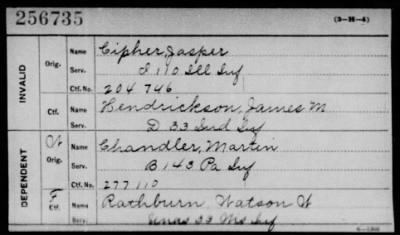 256735 (3-H-4)
INVALID
Orig. Name Cipher, Jasper
Serv. I 110 Ill Inf
Ctf. No. 204746
Ctf. Name Hendrickson, James M
Serv. D 33 Ind Inf
DEPENDENT
W Orig. Name Chandler, Martin
Serv. B 143 Pa Inf
Ctf. No. 277110
F Ctf. Name Rathburn, Watson W
Serv. 33 Inf